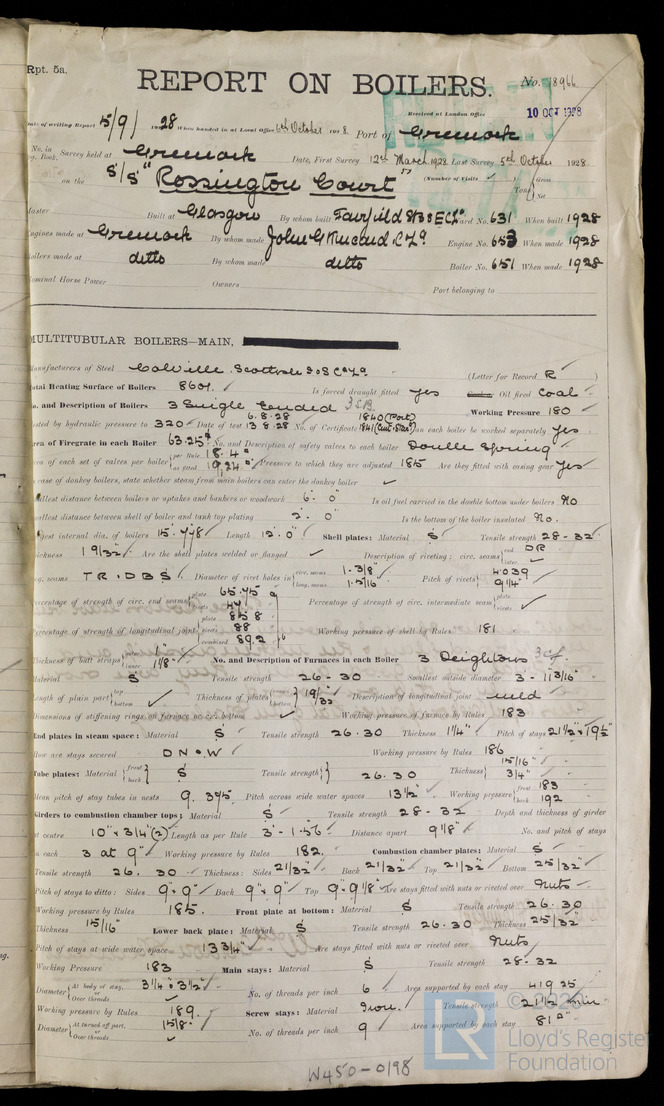 Rpt. 5a.
REPORT ON BOILERS.
No. 18966
Received at London Office
10 OCT 1928
Date of writing Report 5/9/ 1928 When handed in at Local Office 6th October 1928. Port of Greenock
No. in Survey held at Greenock Date, First Survey 12th March 1928 Last Survey 5th October 1928
Book. on the S/S "Rossington Court" (Number of Visits ) Gross Tons Net
Master Built at Glasgow By whom built Fairfield S.B & E Co Ld Yard No. 631 When built 1928
Engines made at Greenock By whom made John G Kincaid & Co Ld Engine No. 653 When made 1928
Boilers made at ditto By whom made ditto Boiler No. 651 When made 1928
Nominal Horse Power Owners Port belonging to
MULTITUBULAR BOILERS—MAIN,
Manufacturers of Steel Colville. Scottish (Letter for Record R )
Total Heating Surface of Boilers 8601. Is forced draught fitted yes Oil fired Coal
No. and Description of Boilers 3 Single Ended 3 SB Working Pressure 180
Tested by hydraulic pressure to 320 Date of test 6.8.28 13.8.28 No. of Certificate 1840 (Port) 1841 Can each boiler be worked separately yes
Area of Firegrate in each Boiler 63.25 No. and Description of safety valves to each boiler Double Spring
Area of each set of valves per boiler per Rule 18.4 as fitted 19.24 Pressure to which they are adjusted 185 Are they fitted with easing gear yes
In case of donkey boilers, state whether steam from main boilers can enter the donkey boiler
Smallest distance between boilers or uptakes and bunkers or woodwork 6'. 0" Is oil fuel carried in the double bottom under boilers No
Smallest distance between shell of boiler and tank top plating 2'. 0" Is the bottom of the boiler insulated No.
Largest internal dia. of boilers 15'. 7 7/8 Length 12'. 0" Shell plates: Material S Tensile strength 28-32
Thickness 1 9/32 Are the shell plates welded or flanged Description of riveting: circ. seams end DR inter.
long. seams TR. DBS Diameter of rivet holes in circ. seams 1.3/8" long. seams 1.5/16" Pitch of rivets 4.039 9 1/4"
Percentage of strength of circ. end seams plate 65.95 rivets 44 Percentage of strength of circ. intermediate seam plate rivets
Percentage of strength of longitudinal joint plate 85.8 rivets 88 combined 89.2 Working pressure of shell by Rules 181
Thickness of butt straps outer inner 1 1/8" No. and Description of Furnaces in each Boiler 3 Deightons 3 cf.
Material S Tensile strength 26-30 Smallest outside diameter 3'-11 3/16"
Length of plain part top bottom Thickness of plates 19/32 Description of longitudinal joint weld
Dimensions of stiffening rings on furnace or c.c. bottom Working pressure of furnace by Rules 183
End plates in steam space: Material S Tensile strength 26.30 Thickness 1 1/4" Pitch of stays 21 1/2" x 19 1/2"
How are stays secured DN & W Working pressure by Rules 186
Tube plates: Material front back S Tensile strength 26.30 Thickness 15/16" 3/4"
Mean pitch of stay tubes in nests 9.375 Pitch across wide water spaces 13 1/2" Working pressure front 183 back 192
Girders to combustion chamber tops: Material S Tensile strength 28-32 Depth and thickness of girder
at centre 10" x 3/4" (2) Length as per Rule 3'-1.56 Distance apart 9 1/8" No. and pitch of stays
in each 3 at 9" Working pressure by Rules 182. Combustion chamber plates: Material S
Tensile strength 26. 30 Thickness: Sides 21/32" Back 21/32" Top 21/32" Bottom 25/32"
Pitch of stays to ditto: Sides 9" x 9" Back 9" x 9" Top 9" x 9 1/8" Are stays fitted with nuts or riveted over Nuts
Working pressure by Rules 185. Front plate at bottom: Material S Tensile strength 26.30
Thickness 15/16" Lower back plate: Material S Tensile strength 26.30 Thickness 25/32"
Pitch of stays at wide water space 13 3/4" Are stays fitted with nuts or riveted over Nuts
Working Pressure 183 Main stays: Material S Tensile strength 28-32
Diameter At body of stay, or Over threads 3 1/4" 3 1/2" No. of threads per inch 6 Area supported by each stay 419.25
Working pressure by Rules 189. Screw stays: Material Iron. Tensile strength 21 1/2 min
Diameter At turned off part, or Over threads 1 5/8" No. of threads per inch 9 Area supported by each stay 81
W450-0198
LR
Lloyd's Register
Foundation